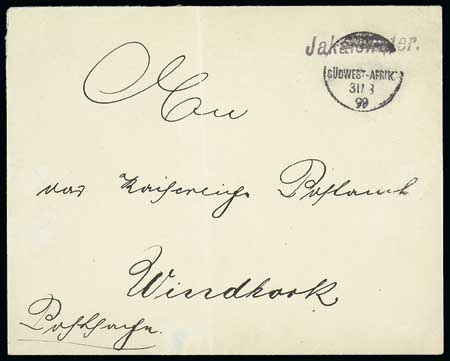 Jakalswater.
SÜDWEST-AFRIKA
31/ 3
99
An
das Kaiserliche Postamt
Windhoek
Postsache.